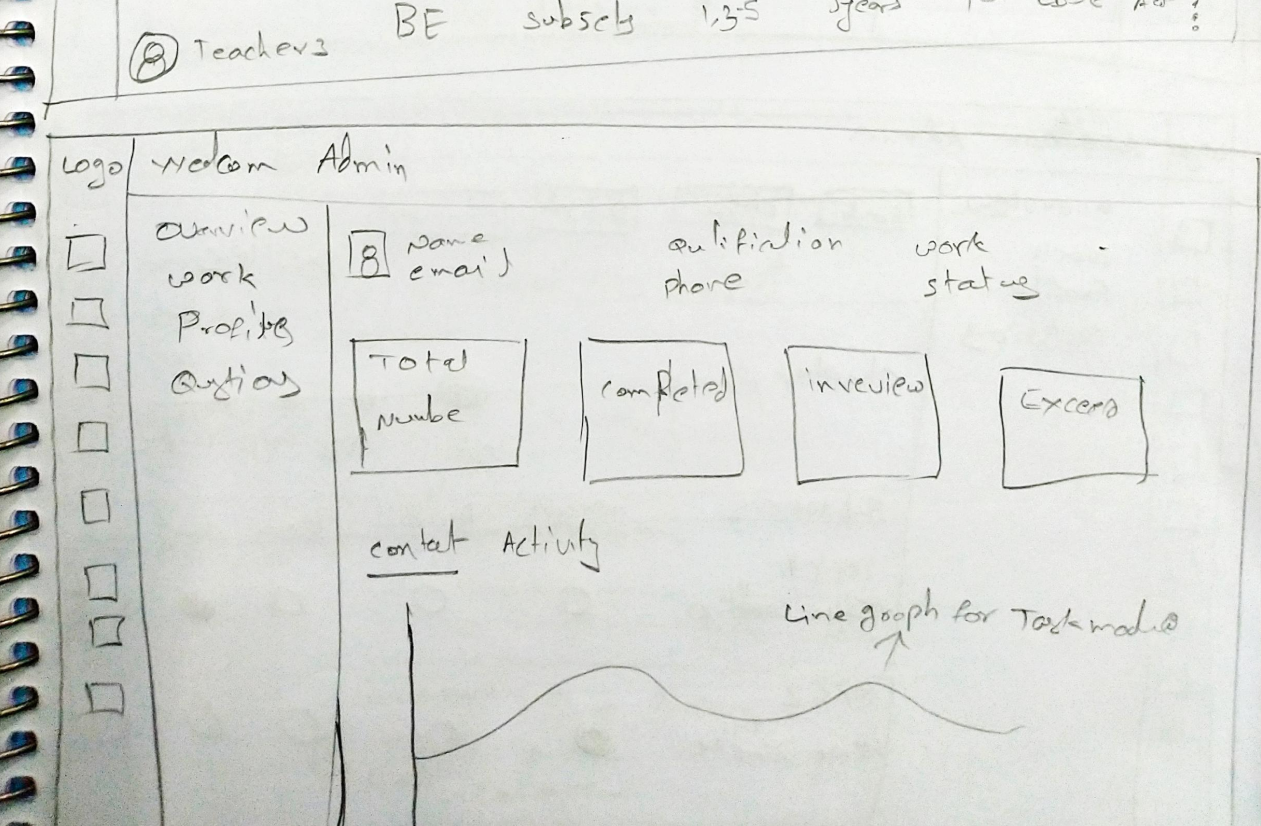 BE subsets 1,3-5 years
Teacher3
Logo
Welcom Admin
Overview
work
Profites
Qutions
Name
email
Qulifiction
phone
work
status
Total
Numbe
completed
inveview
Exceed
contet Activity
Line graph for Task modu